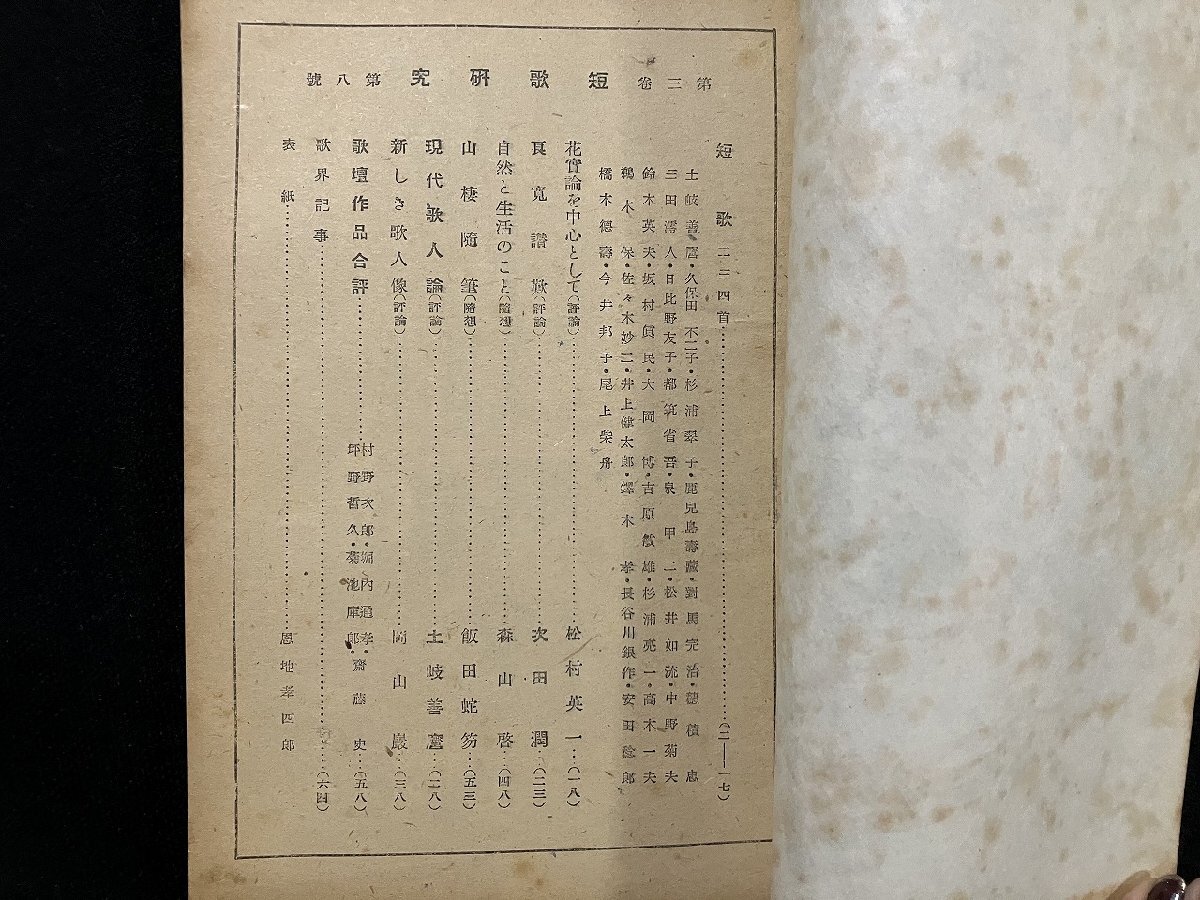 第三卷 短歌研究 第八號
短歌 二三四首……(二——一七)
土岐善麿・久保田不二子・杉浦翠子・鹿兒島壽藏・對馬完治・穗積忠
三田澪人・日比野友子・都筑省吾・泉甲二・松井如流・中野菊夫
鈴木英夫・坂村眞民・大岡博・吉原敏雄・杉浦亮一・高木一夫
鵜木保・佐々木妙二・井上健太郎・蝶木孝・長谷川銀作・安田稔郎
橋本德壽・今井邦子・尾上柴舟
花實論を中心として(評論)……松村英一…(一八)
良寬讃歎(評論)……次田潤…(二三)
自然と生活のこと(隨想)……森山啓…(四八)
山棲隨筆(隨想)……飯田蛇笏…(五三)
現代歌人論(評論)……土岐善麿…(二八)
新しき歌人像(評論)……岡山巖…(三八)
歌壇作品合評……村野次郎・堀內通孝・坪野哲久・菊池庫郎・齋藤史…(五八)
歌界記事……(六四)
表紙……恩地孝四郎